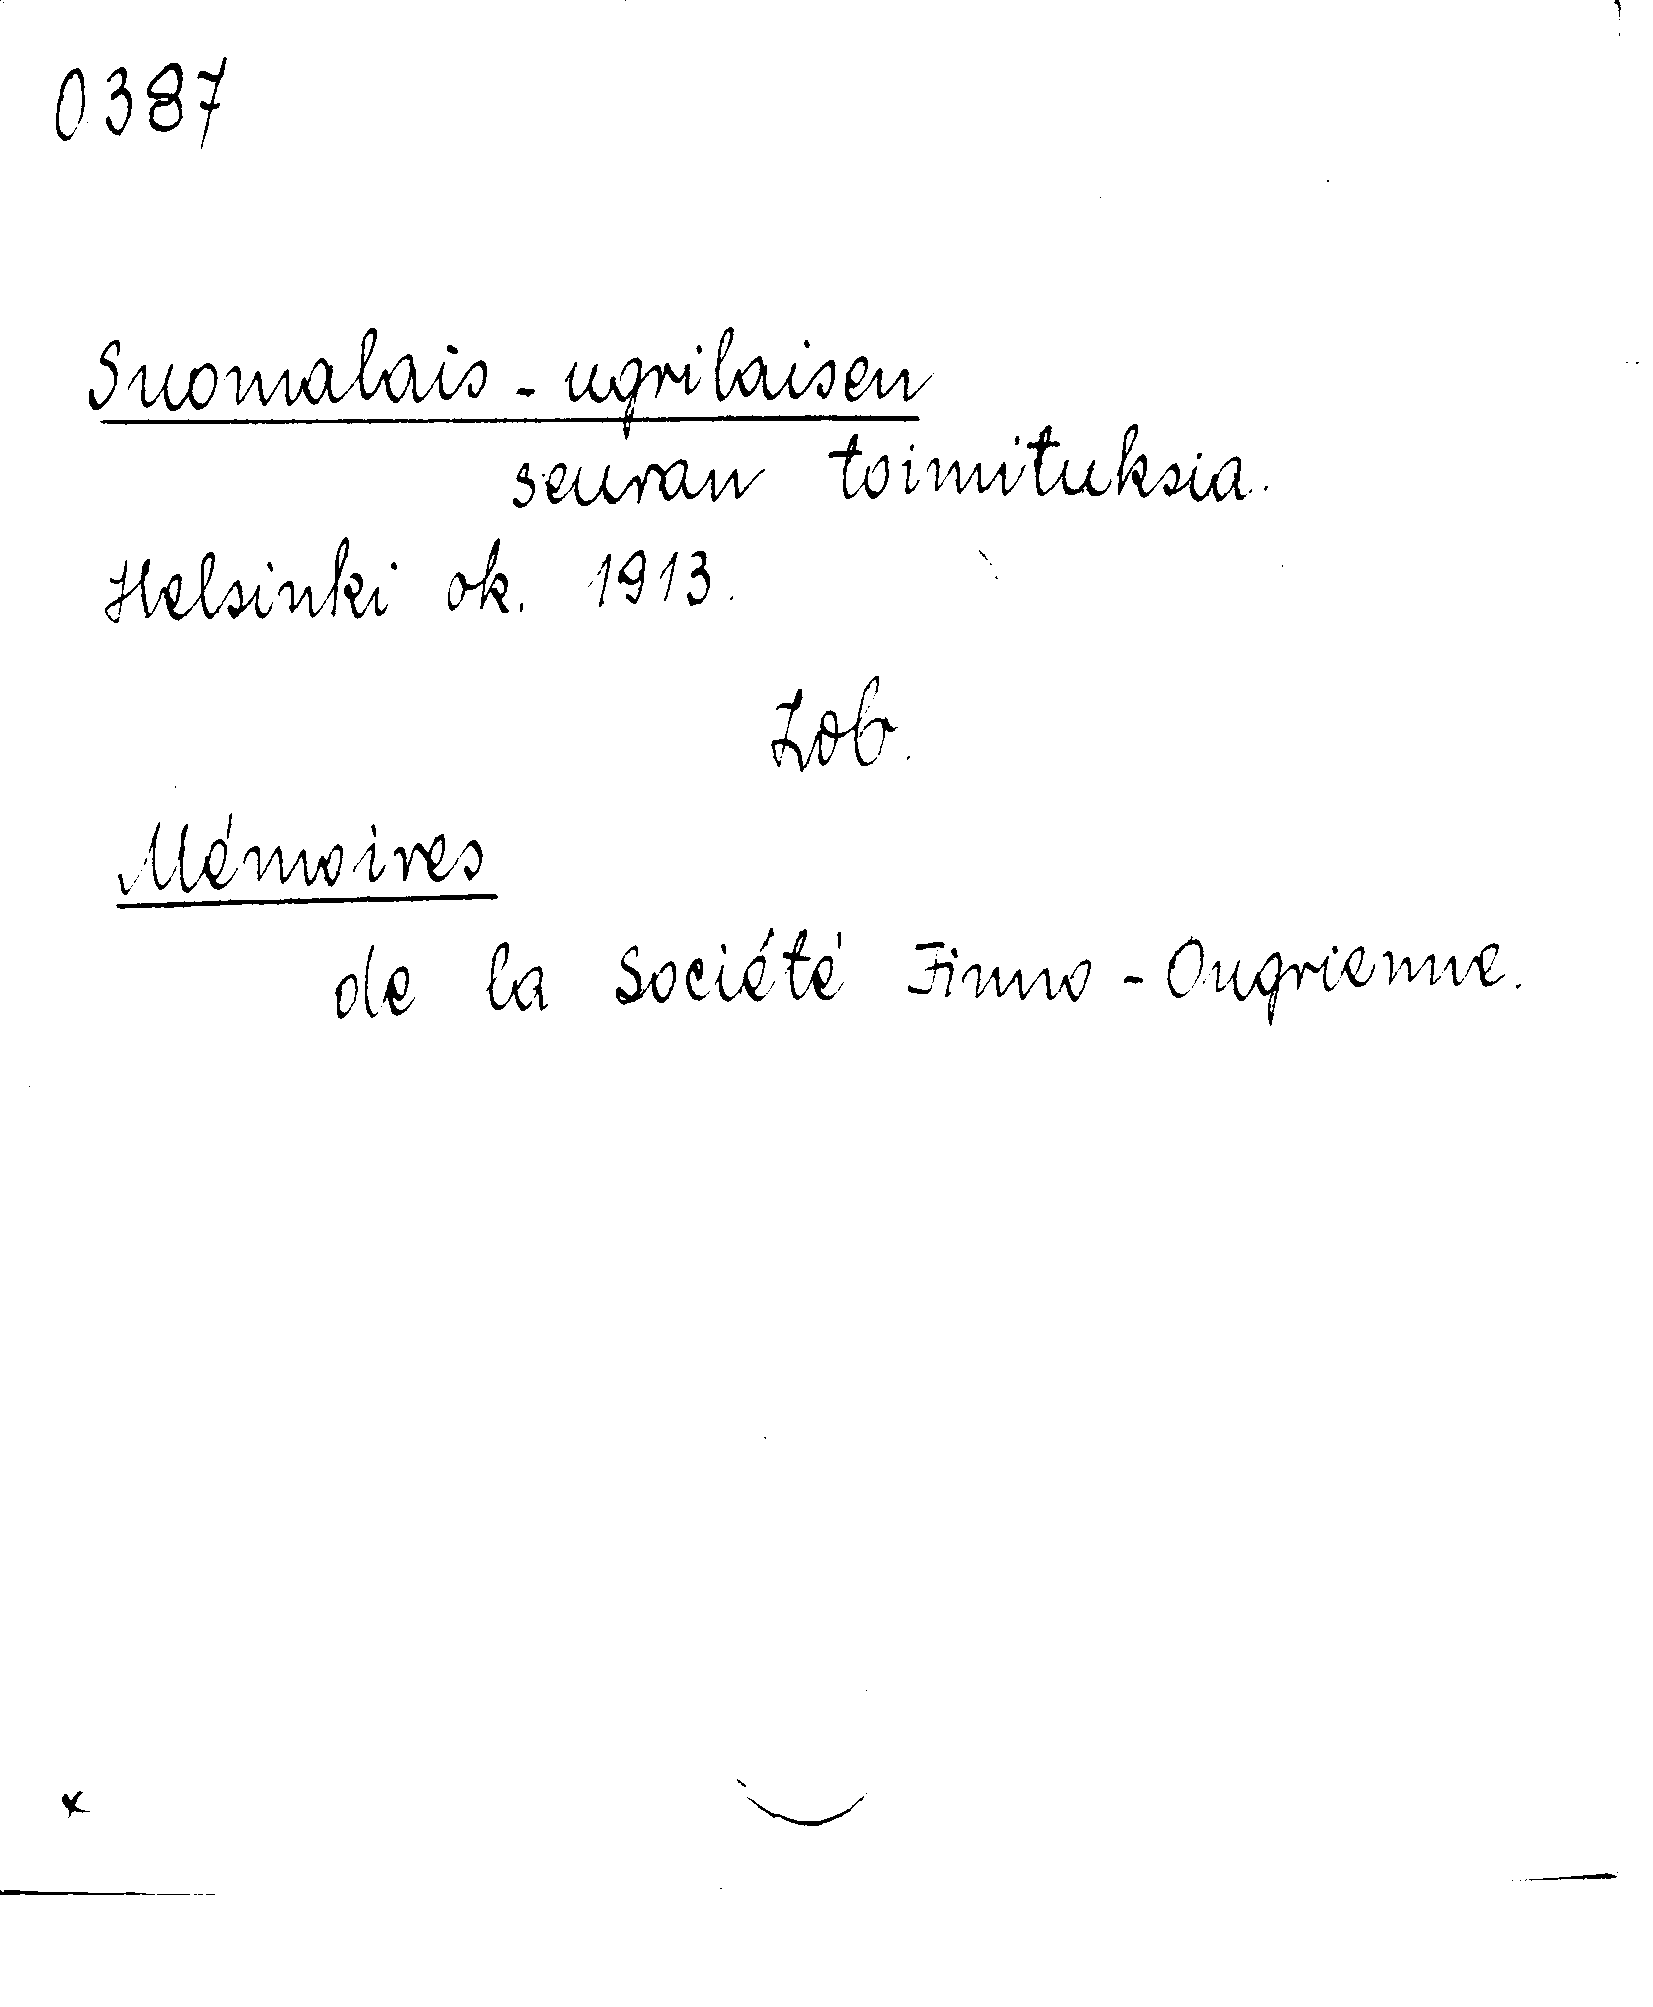 0387
Suomalais - ugrilaisen
seuran toimituksia.
Helsinki ok. 1913.
Zob.
Mémoires
de la Société Finno - Ougrienne.
x